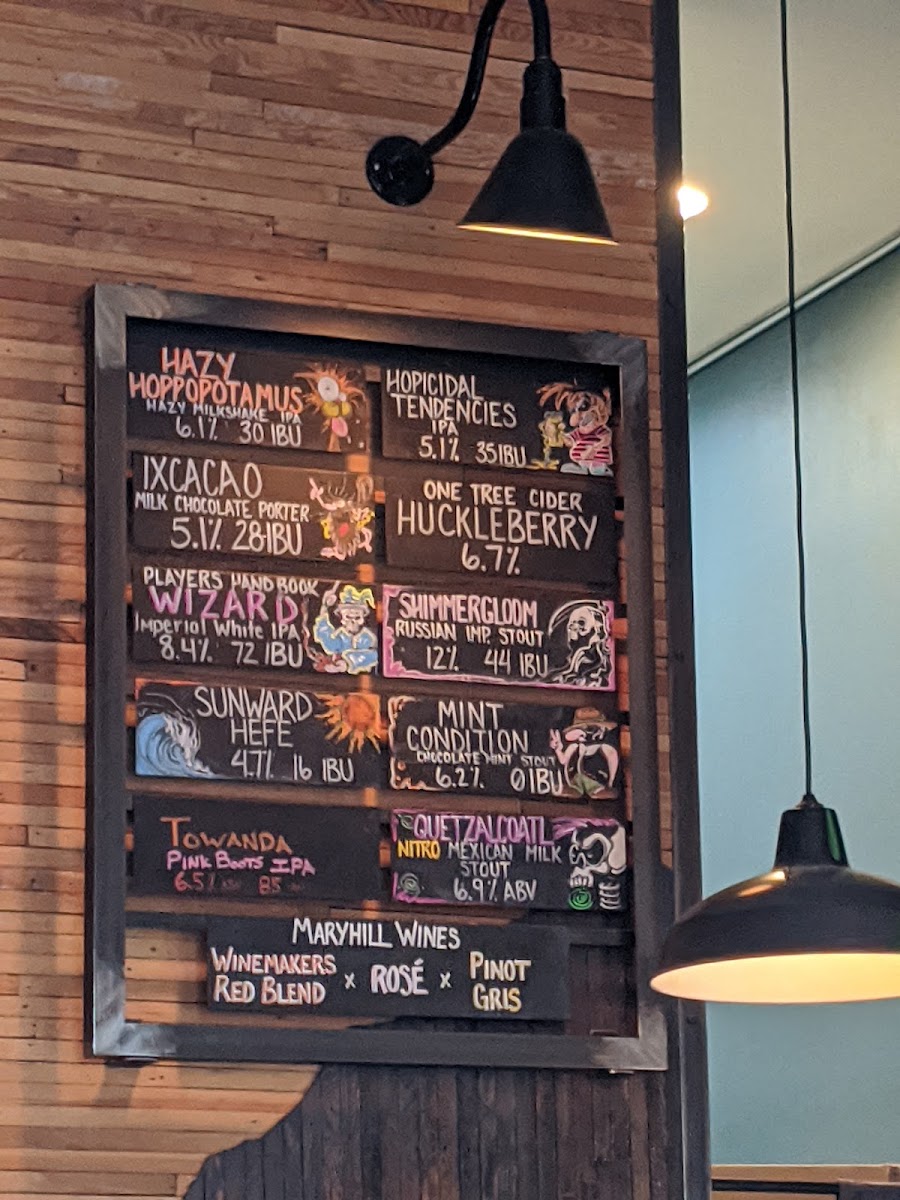 HAZY
HOPPOPOTAMUS
HAZY MILKSHAKE IPA
6.1% 30 IBU
HOPICIDAL
TENDENCIES
IPA
5.1% 35 IBU
IXCACAO
MILK CHOCOLATE PORTER
5.1% 28 IBU
ONE TREE CIDER
HUCKLEBERRY
6.7%
PLAYERS HAND BOOK
WIZARD
Imperial White IPA
8.4% 72 IBU
SHIMMERGLOOM
RUSSIAN IMP. STOUT
12% 44 IBU
SUNWARD
HEFE
4.7% 16 IBU
MINT
CONDITION
CHOCOLATE MINT STOUT
6.2% 0 IBU
TOWANDA
PINK BOOTS IPA
6.5% ABV 85
QUETZALCOATL
NITRO MEXICAN MILK
STOUT
6.9% ABV
MARYHILL WINES
WINEMAKERS
RED BLEND x ROSÉ x PINOT
GRIS